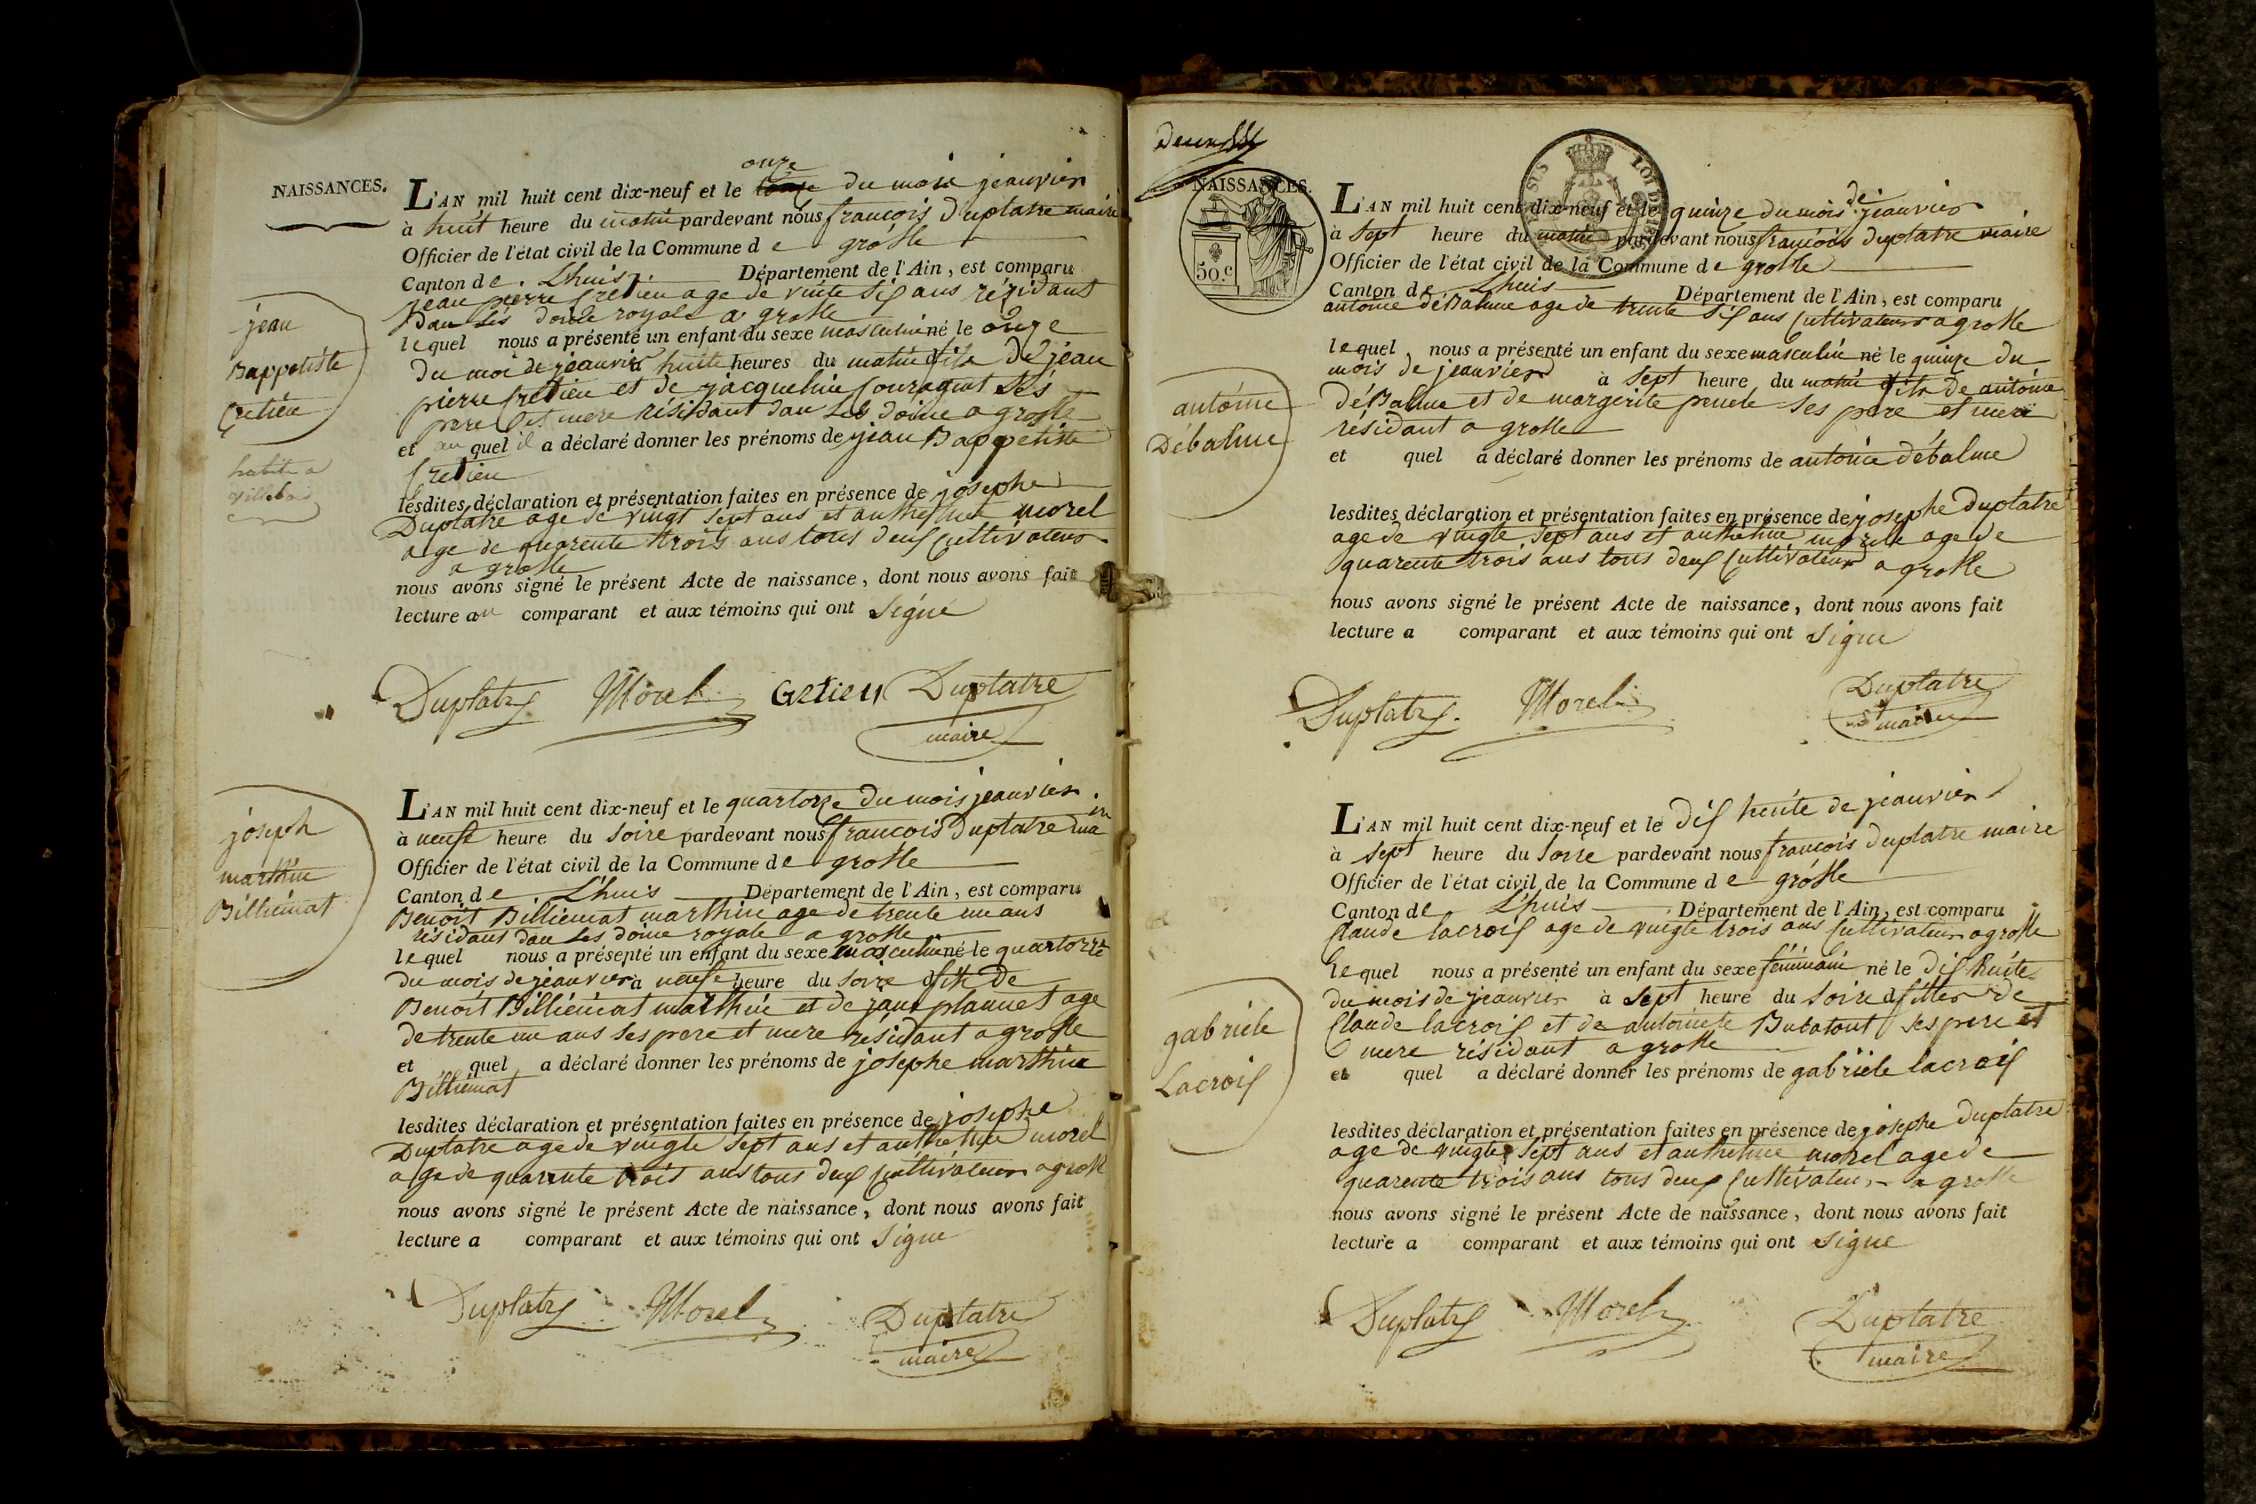 NAISSANCES.
onze
L'AN mil huit cent dix-neuf et le du mois jeauvier
à huit heure du matin pardevant nous francois Duplatre maire
Officier de l'état civil de la Commune de grosle
Canton de Lhuis Département de l'Ain, est comparu
jean pierre Cretien age de vinte six ans résidant
dan les doine royale a grosle
lequel nous a présenté un enfant du sexe masculin né le onze
du moi de jeauvier à huite heures du matin fils de jean
pierre Cretien et de jacqueline Couragout Ses
pere et mere résidant dan les doine a grosle
et au quel il a déclaré donner les prénoms de jean Bappetiste
Cretien
lesdites déclaration et présentation faites en présence de josephe
Duplatre age de vingt sept ans et anthelme morel
age de quarente trois ans tous deux Cultivateur
a grosle
nous avons signé le présent Acte de naissance, dont nous avons fait
lecture au comparant et aux témoins qui ont Signé
jean
Bappetiste
Cretien
habite a
Duplatre Morel Cretien Duplatre
maire
joseph
marthin
Billiemat
L'AN mil huit cent dix-neuf et le quartorze du mois jeauvier
à neufe heure du soire pardevant nous francois Duplatre maire
Officier de l'état civil de la Commune de grosle
Canton de Lhuis Département de l'Ain, est comparu
Benoit Billiemat marthin age de trente un ans
résidant dan les doine royale a grosle
lequel nous a présenté un enfant du sexe masculin né le quartorze
du mois de jeauvier à neufe heure du soire fils de
Benoit Billiémat marthin et de jane plannet age
de trente un ans ses pere et mere résidant a grosle
et quel a déclaré donner les prénoms de josephe marthin
Billiémat
lesdites déclaration et présentation faites en présence de josephe
Duplatre age de vingte sept ans et anthelme morel
age de quarente trois ans tous deux Cultivateur a grosle
nous avons signé le présent Acte de naissance, dont nous avons fait
lecture a comparant et aux témoins qui ont Signe
Duplatre Morel Duplatre
maire
NAISSANCES.
50.c
L'AN mil huit cent dix-neuf et le quinze du mois de jeauvier
à sept heure du matin pardevant nous francois duplatre maire
Officier de l'état civil de la Commune de grosle
Canton de Lhuis Département de l'Ain, est comparu
antoine déBalme age de trente six ans Cultivateur a grosle
lequel nous a présenté un enfant du sexe masculin né le quinze du
mois de jeauvier à sept heure du matin fils de antoine
déBalme et de margerite penele ses pere et mere
résidant a grosle
et quel a déclaré donner les prénoms de antoine débalme
lesdites déclaration et présentation faites en présence de josephe Duplatre
age de vingte sept ans et anthelme morele age de
quarente trois ans tous deux Cultivateur a grosle
nous avons signé le présent Acte de naissance, dont nous avons fait
lecture a comparant et aux témoins qui ont Signe
antoine
Débalme
Duplatre Morel Duplatre
maire
L'AN mil huit cent dix-neuf et le dix huite de jeauvier
à sept heure du soire pardevant nous francois Duplatre maire
Officier de l'état civil de la Commune de grosle
Canton de Lhuis Département de l'Ain, est comparu
Claude lacroix age de vingte trois ans Cultivateur a grosle
lequel nous a présenté un enfant du sexe féminain né le dix huite
du mois de jeauvier à sept heure du soire filler de
Claude lacroix et de antoinete Bubatout ses pere et
mere résidant a grosle
et quel a déclaré donner les prénoms de gabriele lacroix
lesdites déclaration et présentation faites en présence de josephe Duplatre
age de vingte sept ans et anthelme morel age de
quarente trois ans tous deux Cultivateur a grosle
nous avons signé le présent Acte de naissance, dont nous avons fait
lecture a comparant et aux témoins qui ont Signe
gabriele
Lacroix
Duplatre Morel Duplatre
maire